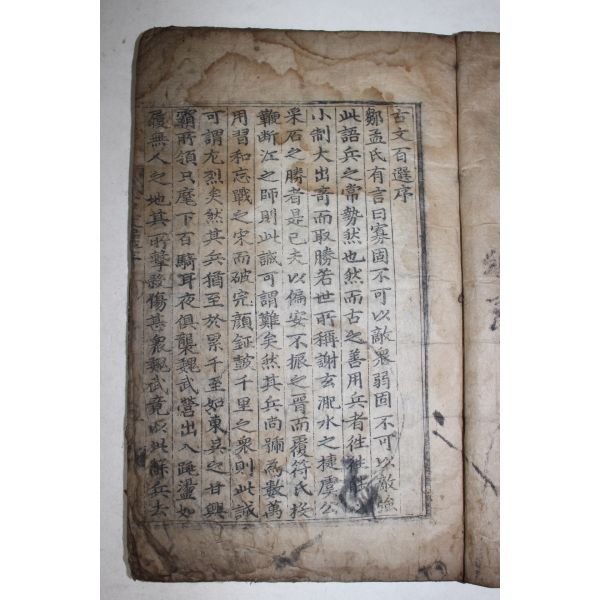 古文百選序
鄒孟氏有言曰寡固不可以敵衆弱固不可以敵強
此語兵之常勢然也然而古之善用兵者徃徃
小制大出竒而取勝若世所稱謝玄淝水之捷虞公
采石之勝者是已夫以偏安不振之晋而覆符氏投
鞭断江之師則此誠可謂難矣然其兵尚踰為數萬
用習和忘戰之宋而破完顔鉦鼓千里之衆則此誠
可謂尤烈矣然其兵猶至於累千至如東吳之甘興
霸所領只麾下百騎耳夜俱襲魏武營出入踵盪如
履無人之地其所擊殺傷甚衆魏武竟以此觧兵去